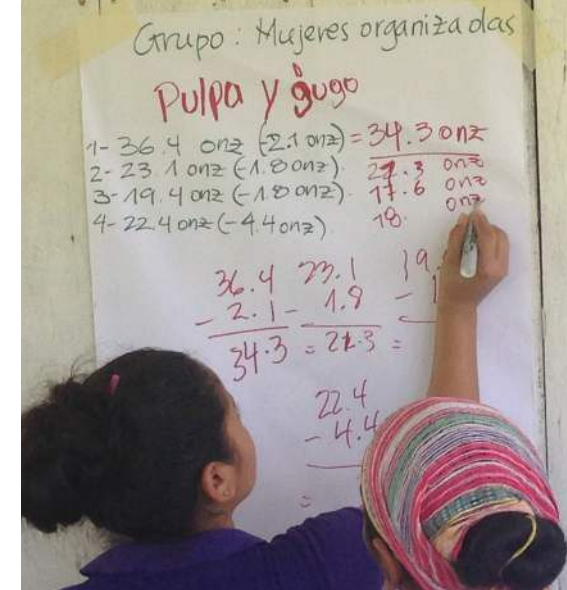 Grupo: Mujeres organizadas
Pulpa y gugo
1- 36.4 onz (-2.1 onz) = 34.3 onz
2- 23.1 onz (-1.8 onz). 21.3 onz
3- 19.4 onz (-1.8 onz). 17.6 onz
4- 22.4 onz (-4.4 onz). 18. onz
36.4 23.1 19.
- 2.1 - 1.8 - 1
34.3 = 21.3 =
22.4
- 4.4
=